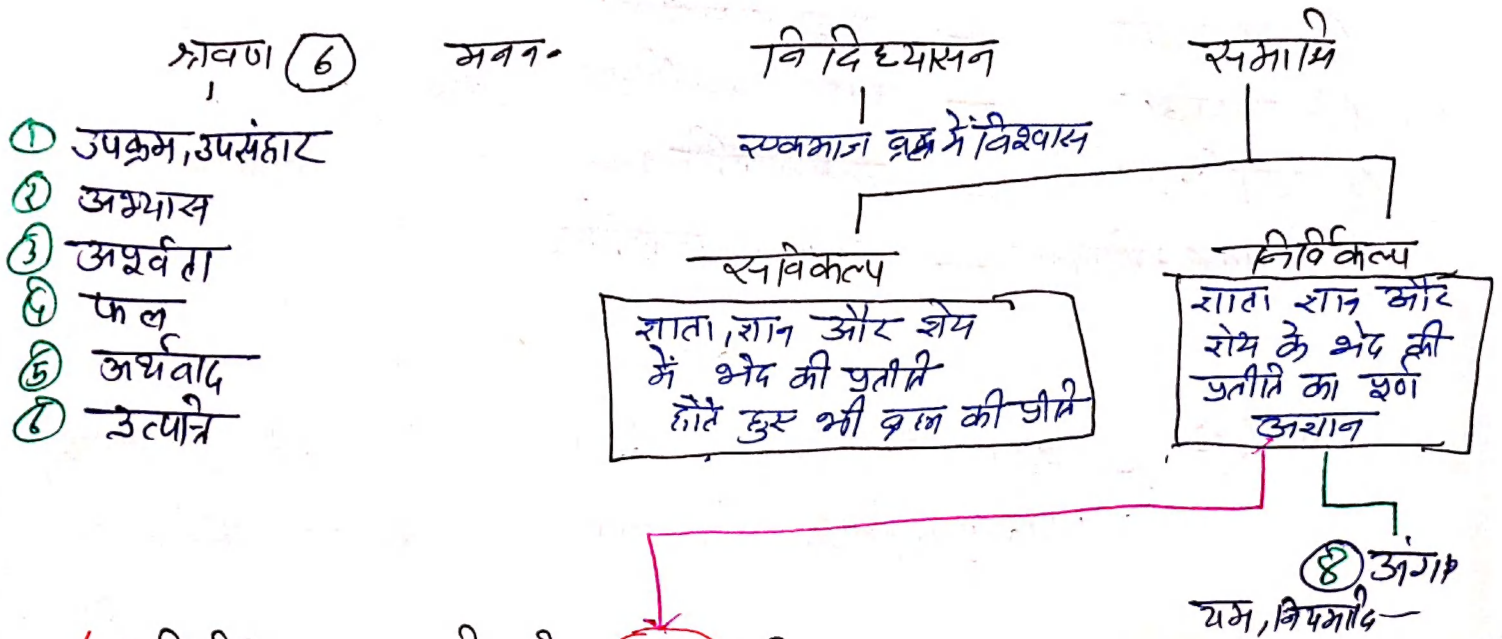 श्रवण ⑥ मनन. निदिध्यासन समाधि
① उपक्रम, उपसंहार
② अभ्यास
③ अपूर्वता
④ फल
⑤ अर्थवाद
⑥
एकमात्र ब्रह्म में विश्वास
सविकल्प
ज्ञाता, ज्ञान और ज्ञेय
में भेद की प्रतीति
होते हुए भी ब्रह्म की
निर्विकल्प
ज्ञाता ज्ञान और
ज्ञेय के भेद की
प्रतीति का पूर्ण
⑧ अंग
यम, नियमादि—